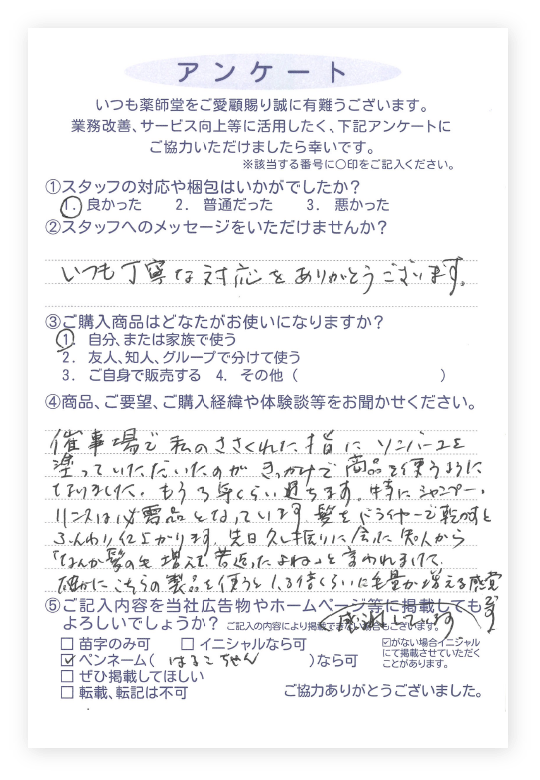 アンケート
いつも薬師堂をご愛顧賜り誠に有難うございます。
業務改善、サービス向上等に活用したく、下記アンケートに
ご協力いただけましたら幸いです。
※該当する番号に○印をご記入ください。
①スタッフの対応や梱包はいかがでしたか?
1. 良かった 2. 普通だった 3. 悪かった
②スタッフへのメッセージをいただけませんか?
いつも丁寧な対応をありがとうございます。
③ご購入商品はどなたがお使いになりますか?
1. 自分、または家族で使う
2. 友人、知人、グループで分けて使う
3. ご自身で販売する 4. その他( )
④商品、ご要望、ご購入経緯や体験談等をお聞かせください。
催事場で私のささくれた指にソンバーユを
塗っていただいたのがきっかけで商品を使うように
なりました。もう3年くらい過ちます。特にシャンプー・
リンスは必需品となっています。髪をドライヤーで乾かすと
ふんわり仕上がります。先日久し振りに会った知人から
「なんか髪の毛増えて若返ったよね」と言われまして、
確かにこちらの製品を使うと1.3倍くらいに毛量が増える感覚
です
感謝しています
⑤ご記入内容を当社広告物やホームページ等に掲載しても
よろしいでしょうか?ご記入の内容により掲載できない場合もございます。
□ 苗字のみ可 □ イニシャルなら可
☑ ペンネーム( はるこちゃん )なら可
□ ぜひ掲載してほしい
□ 転載、転記は不可
☑がない場合イニシャル
にて掲載させていただく
ことがあります。
ご協力ありがとうございました。